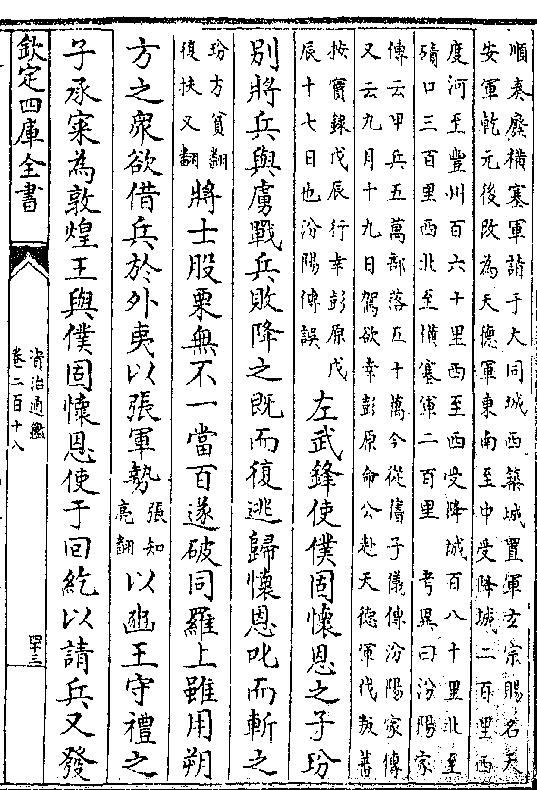 順奏廢橫塞軍請于大同城西築城置軍𤣥宗賜名天
安軍乾元後改為天德軍東南至中受降城二百里西
度河至豐州百六十里西至西受降城百八十里北至
磧口三百里西北至橫塞軍二百里 考異曰汾陽家
傳云甲兵五萬部落五十萬今從舊子儀傳汾陽家傳
又云九月十九日駕欲幸彭原命公赴天德軍伐叛蕃
按實錄戊辰行幸彭原戊
辰十七日也汾陽傳誤
左武鋒使僕固懷恩之子玢
别將兵與虜戰兵敗降之既而復逃歸懷恩叱而斬之
玢方貧翻
復扶又翻
將士股栗無不一當百遂破同羅上雖用朔
方之衆欲借兵於外夷以張軍勢
張知
亮翻
以豳王守禮之
子承寀為敦煌王與僕固懷恩使于回紇以請兵又發
欽定四庫全書
資治通鑑
卷二百十八
四十三